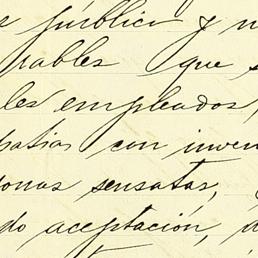 pública y
rables que s
les empleados,
patias con inven
onas sensatas,
do aceptación, d